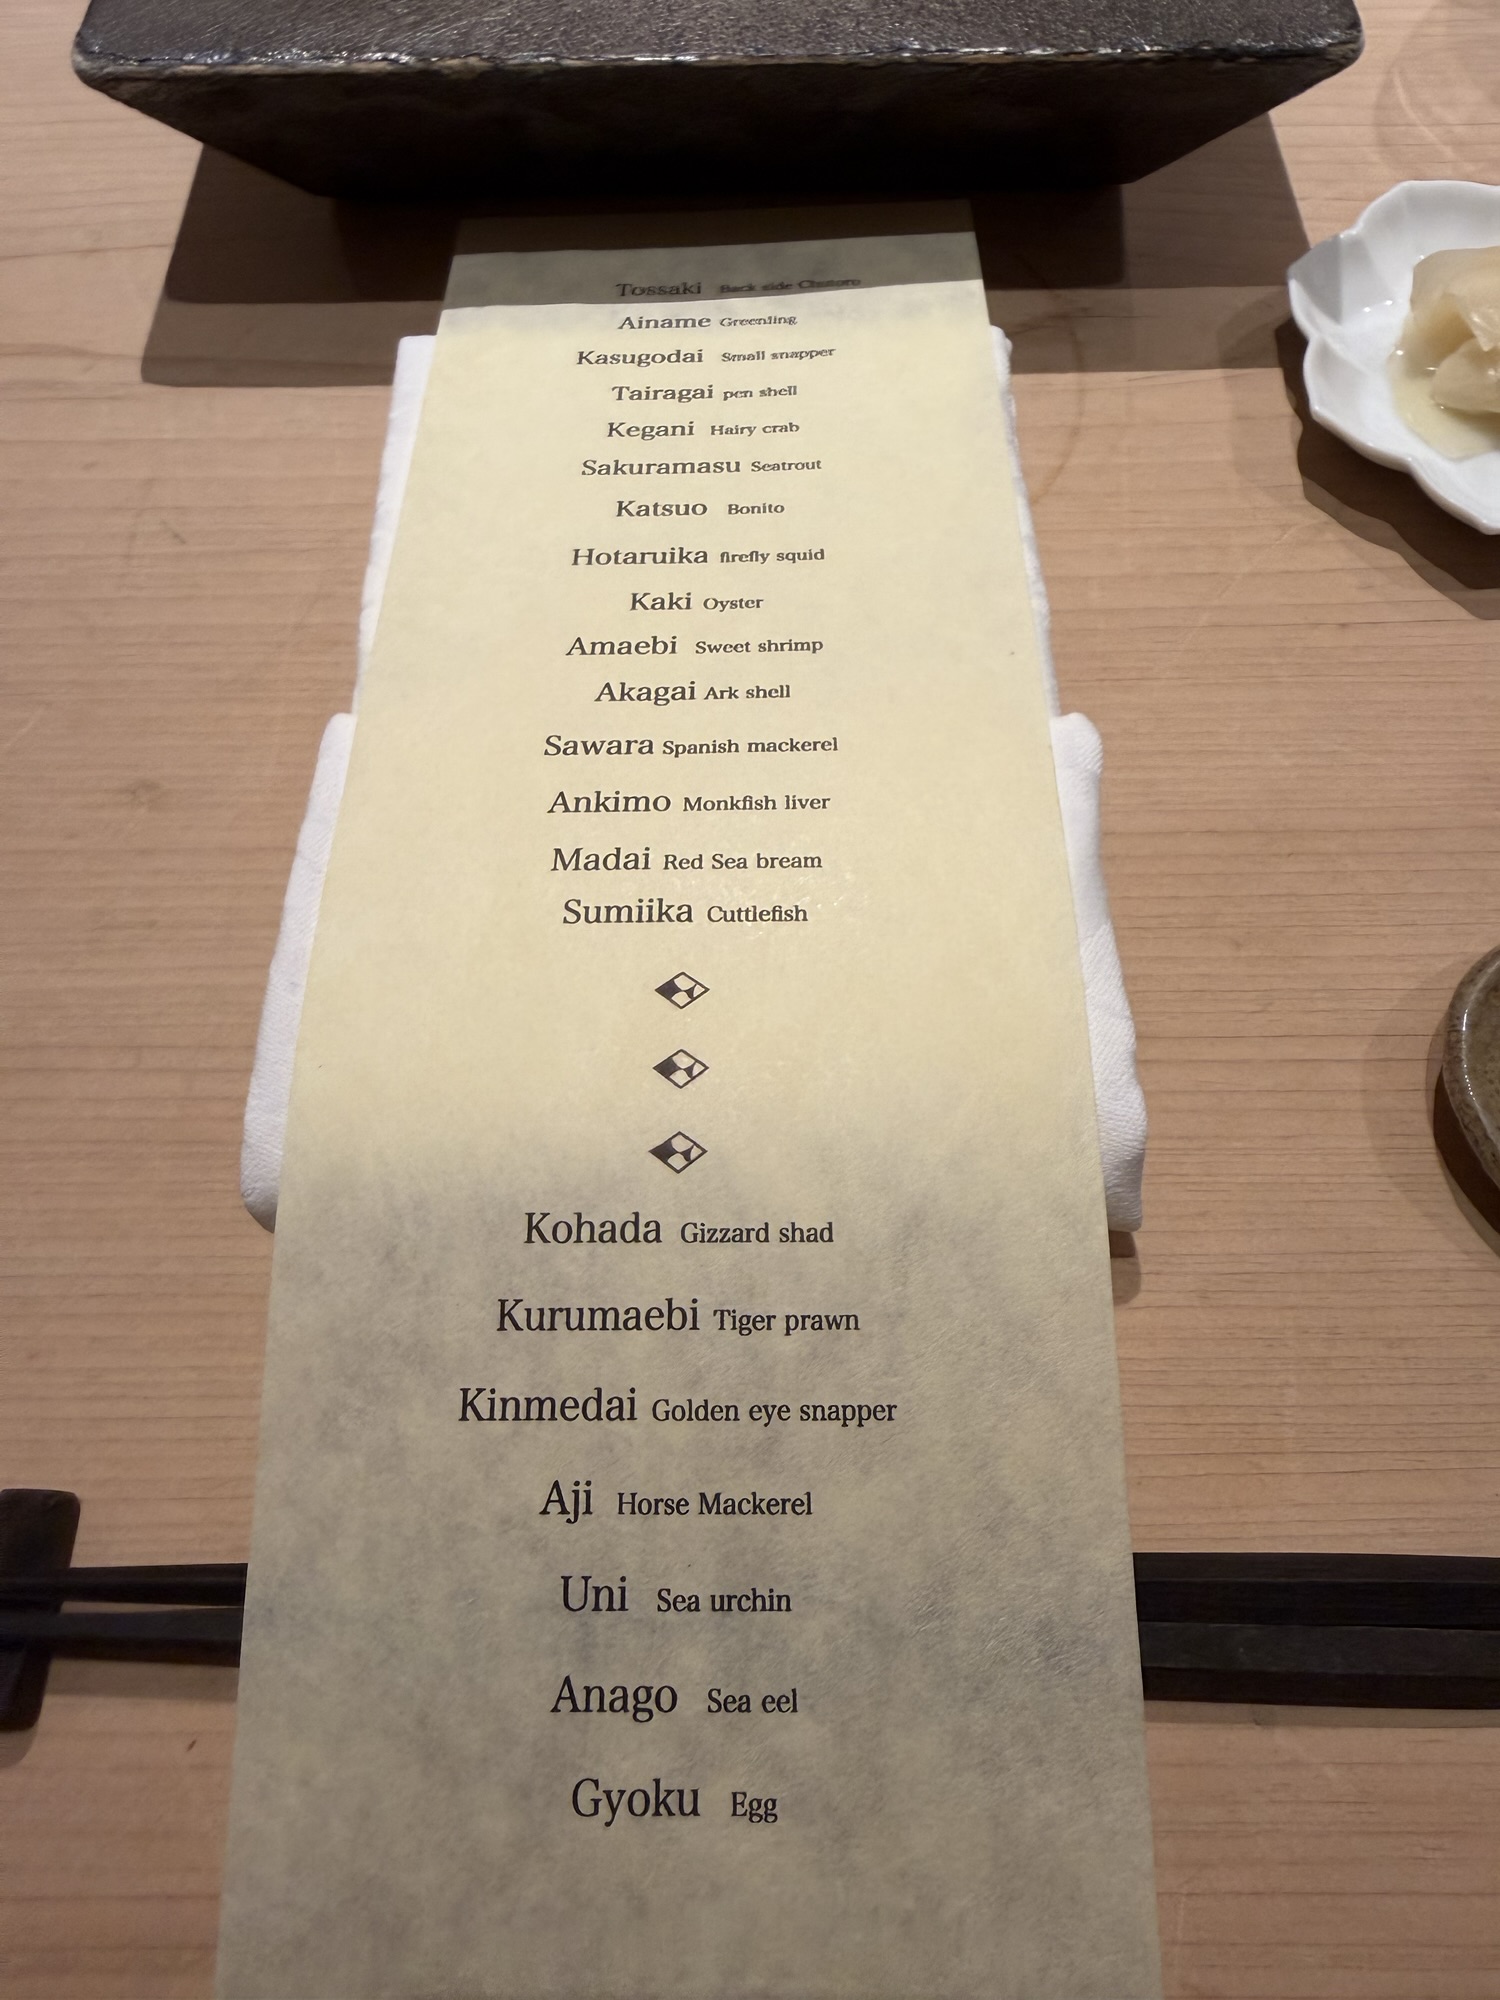 Tossaki Back side Chutoro
Ainame Greenling
Kasugodai Small snapper
Tairagai pen shell
Kegani Hairy crab
Sakuramasu Seatrout
Katsuo Bonito
Hotaruika firefly squid
Kaki Oyster
Amaebi Sweet shrimp
Akagai Ark shell
Sawara Spanish mackerel
Ankimo Monkfish liver
Madai Red Sea bream
Sumiika Cuttlefish
Kohada Gizzard shad
Kurumaebi Tiger prawn
Kinmedai Golden eye snapper
Aji Horse Mackerel
Uni Sea urchin
Anago Sea eel
Gyoku Egg